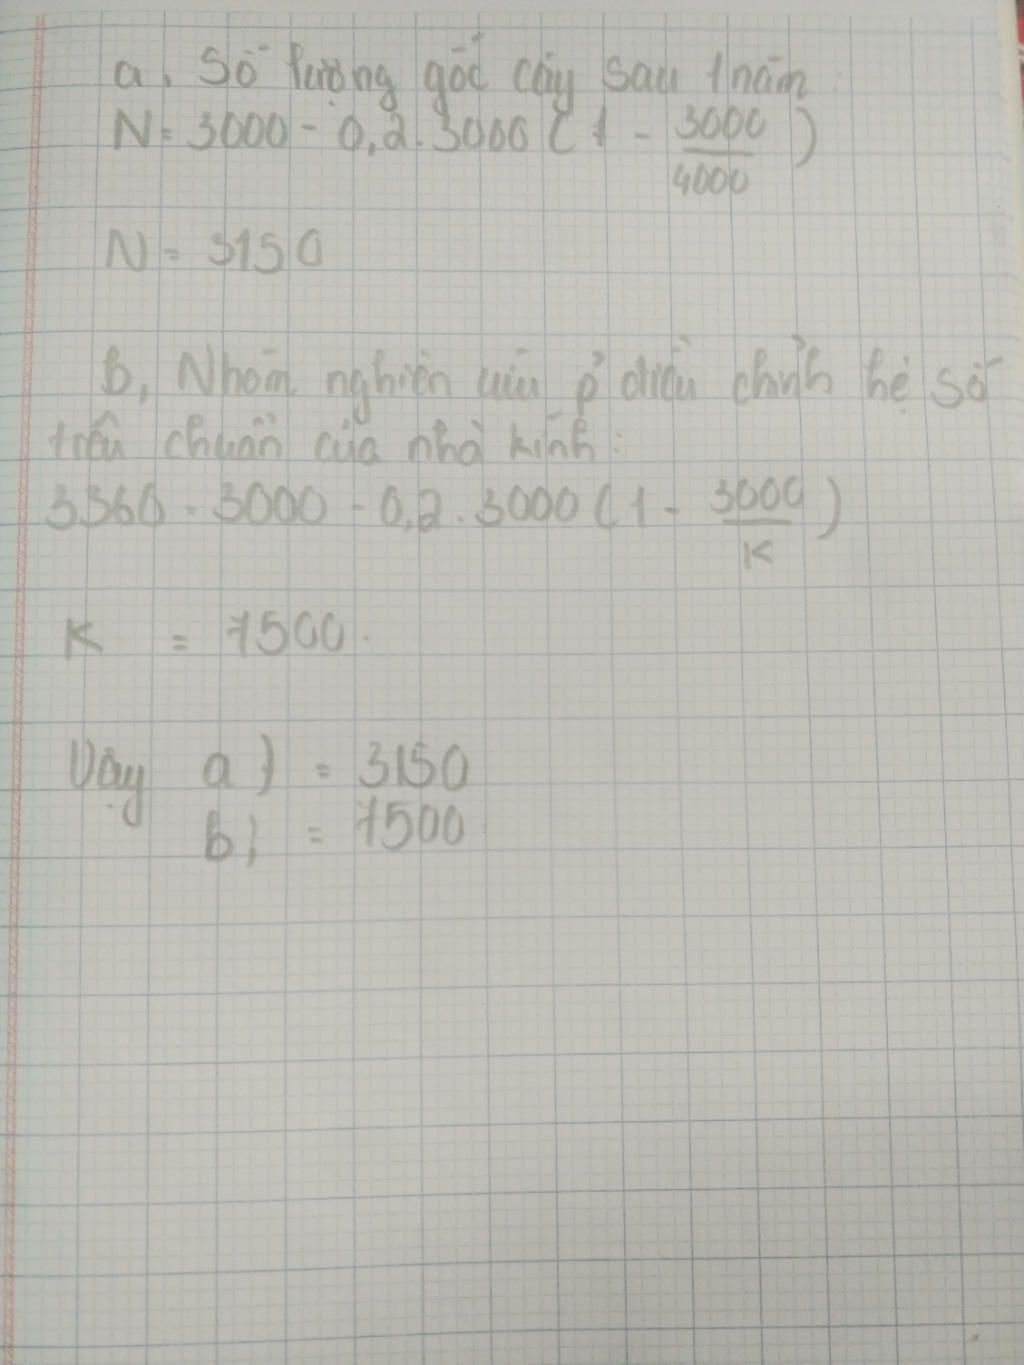 a, Số lượng gốc cây sau 1 năm
N = 3000 - 0,2 . 3000 ( 1 - 3000/4000 )
N = 3150
b, Nhóm nghiên cứu p điều chỉnh hệ số
tiêu chuẩn của nhà kính:
3360 = 3000 - 0,2 . 3000 ( 1 - 3000/K )
K = 7500.
Vậy a) = 3150
b) = 7500